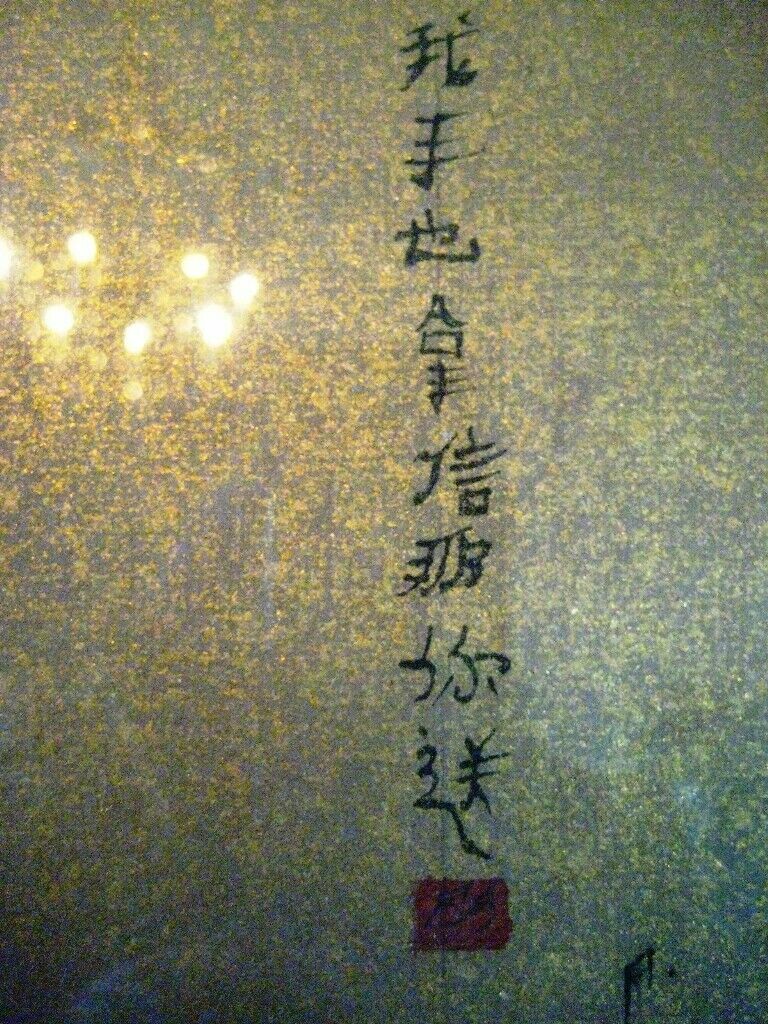 我手也拿信那你送